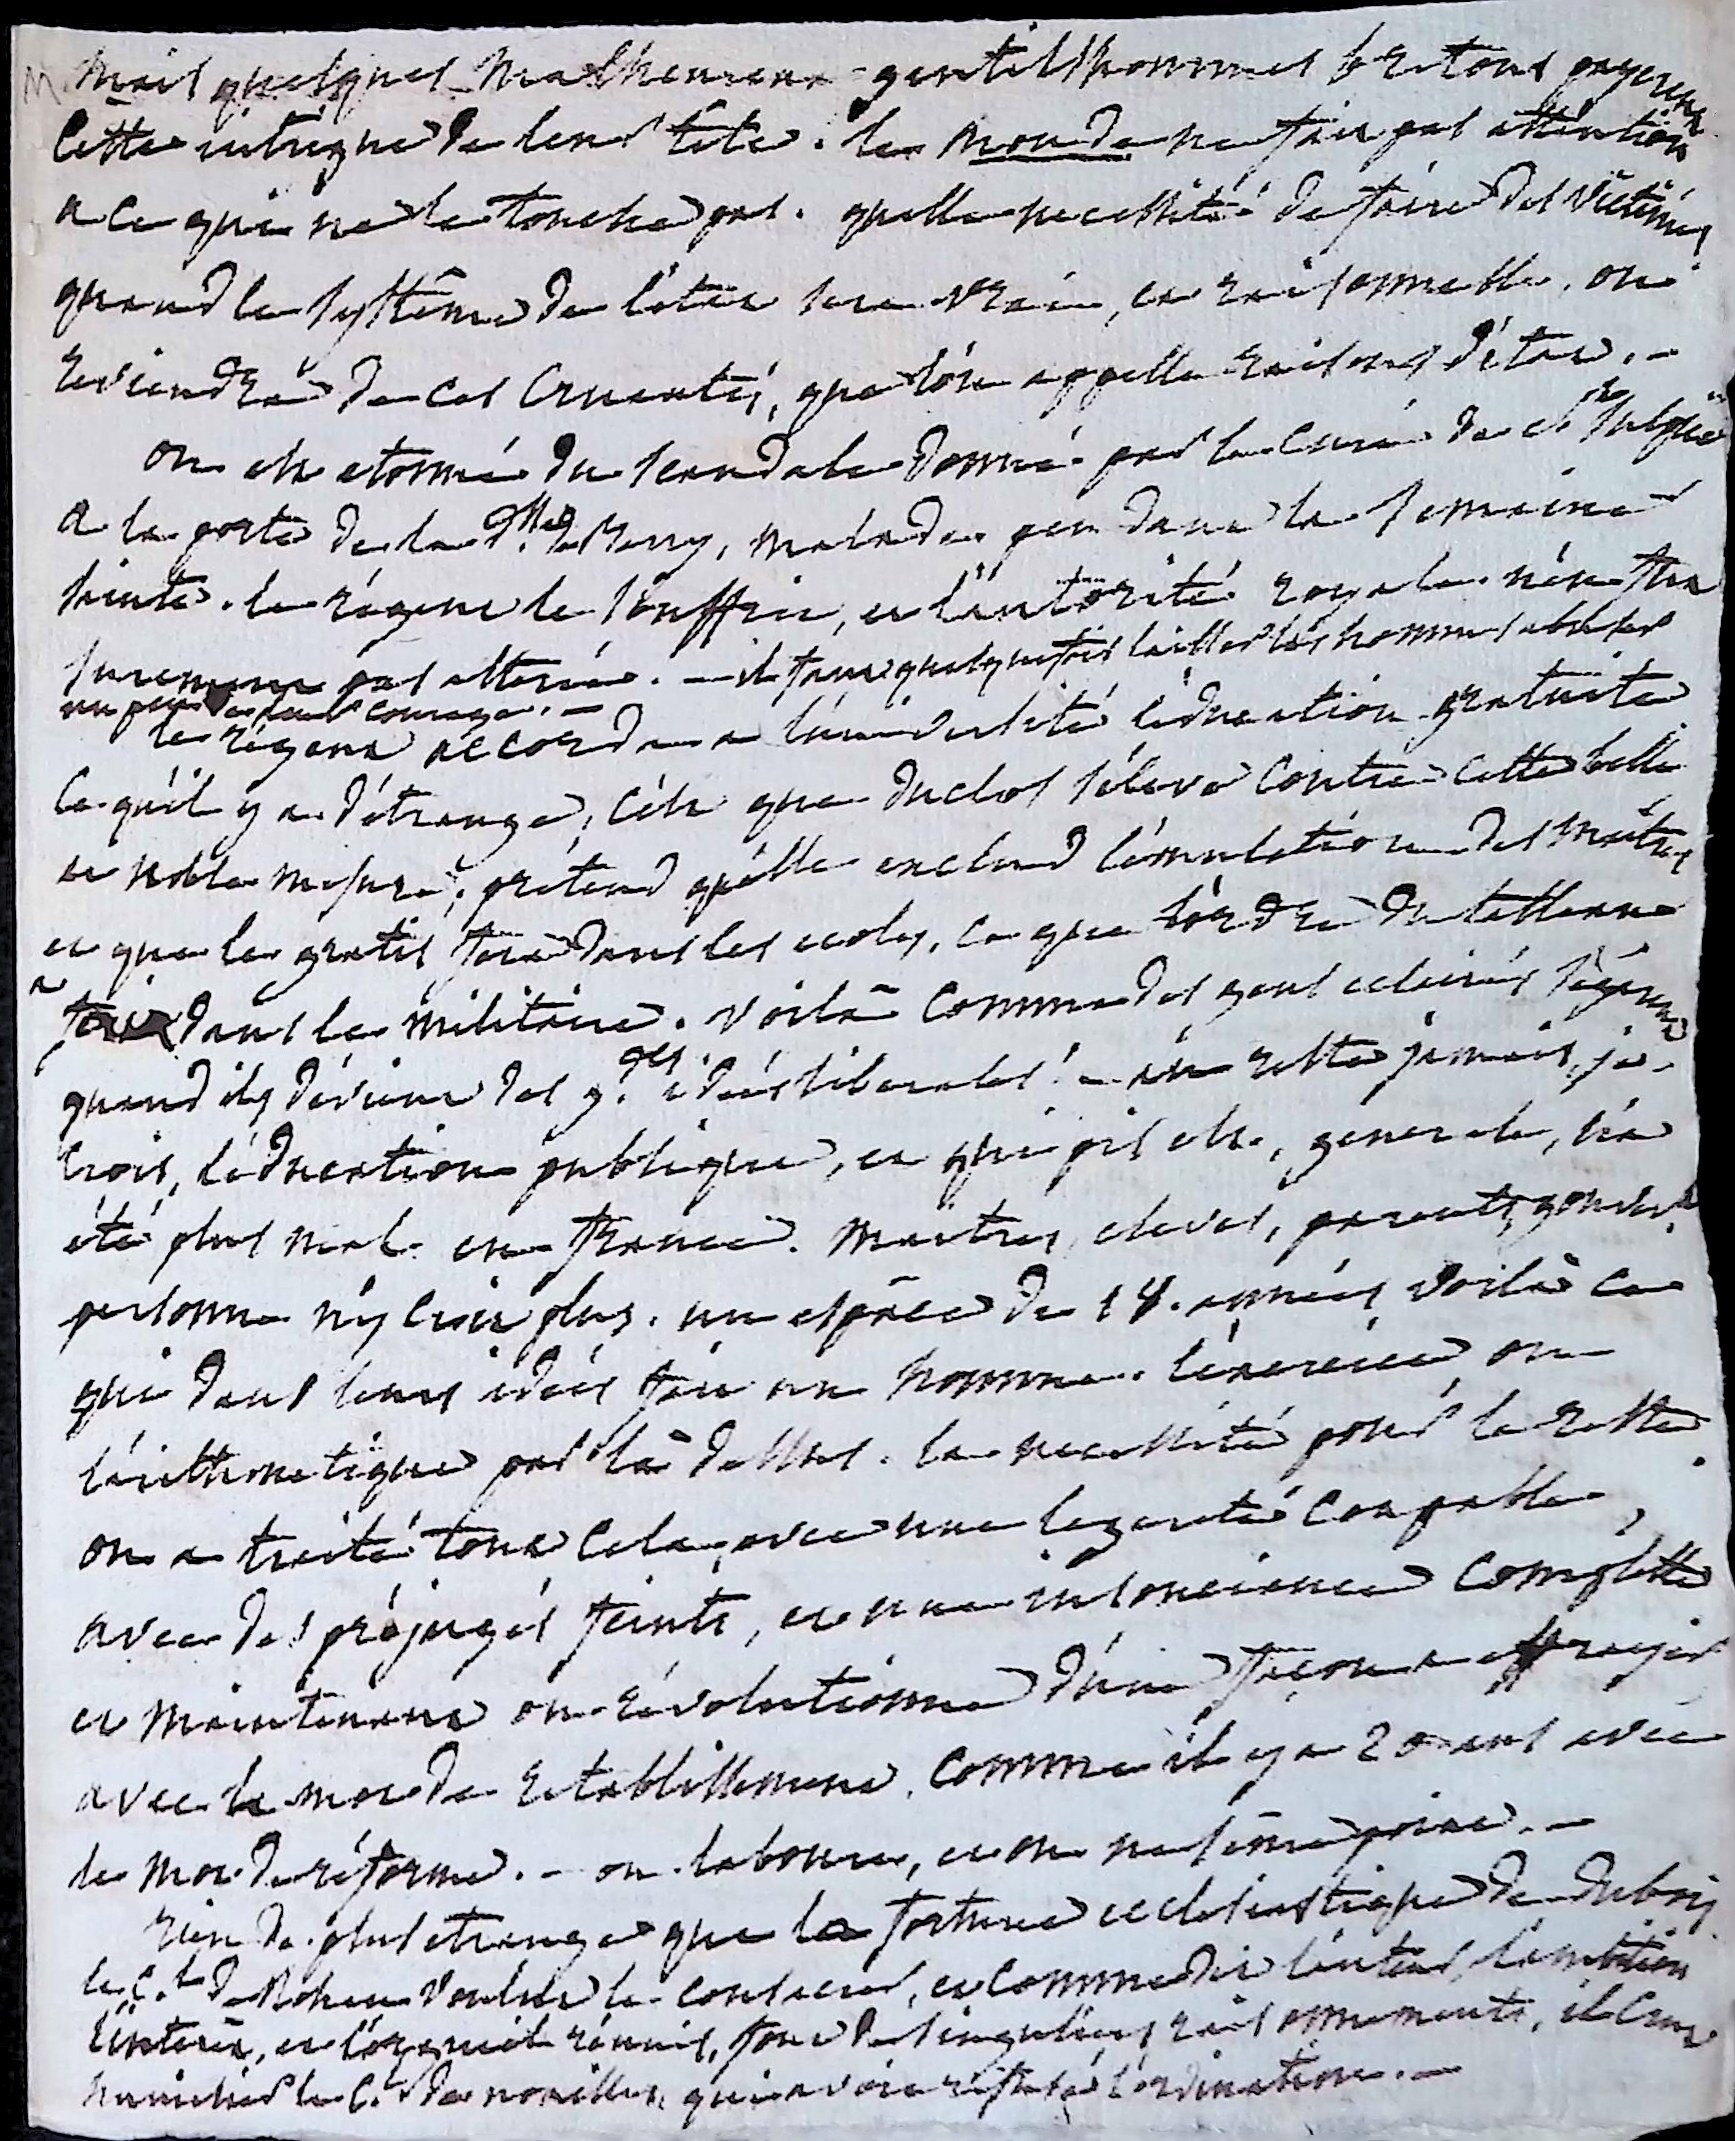 mais quelques malheureux gentilshommes bretons payerent
cette intrigue de leur tête. le monde ne fait pas attention
a ce qui ne le touche pas. quelle necessité de faire des victimes
quand le systême de l'état sera vrai, et raisonnable, on
reviendra de ces cruautés, que l'on appelle raisons d'état. -
on est etonné du scandale donné par le curé de St Sulpice
a la porte de la D.sse de Berry, malade pendant la semaine
sainte. le régent le souffrit, et l'autorité royale n'en fut
surement pas alterée. - il faut quelquefois laisser les hommes abuser
un peu de leur courage. -
le régent accorda a l'université l'education gratuite
ce qu'il y a d'étrange, c'est que duclos s'éleve contre cette belle
et noble mesure, prétend qu'elle exclud l'émulation des maîtres
et que le gratis fera dans les ecoles, ce que l'ordre du tableau
a fait dans le militaire. voilà comme des gens eclairés s'égarent
quand ils dévient des g.des idées liberales! - au reste jamais, je
crois, l'éducation publique, et qui pis est, generale, n'a
été plus mal en france. maitres, eleves, parents,
personne n'y croit plus. un espace de 14. années voilà ce
qui dans leurs idées fait un homme. l'exercice, ou
l'arithmetique par là dessus. la necessité pour le reste.
on a traité tout cela, avec une legereté coupable,
avec des préjugés feints, et une insouciance complette
et maintenant on révolutionne d'une façon a effrayer
avec le mot de retablissement, comme il y a 20 ans avec
le mot de réforme. - on laboure, et on ne seme point. -
rien de plus etrange que la fortune ecclesiastique de dubois
le C.al de Rohan voulut le consacrer, et comme dit l'auteur, l'ambition
l'interêt, et l'orgueil réunis, font de singuliers raisonnements, il crut
humilier le C.al de noailles, qui avoit refusé l'ordination. -